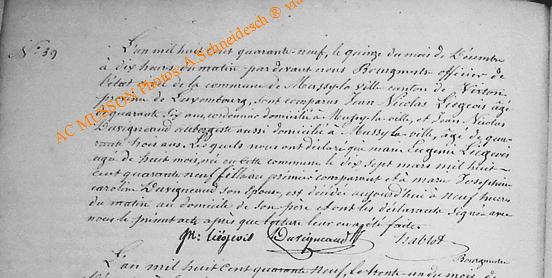 N.° 39
L'an mil huit cent quarante-neuf, le quinze du mois de Décembre
à dix heures du matin par devant nous Bourgmestre officier de
l'état civil de la commune de Mussy-la-ville canton de Virton
province de Luxembourg, sont comparus Jean Nicolas Liégeois âgé
de quarante six ans, cordonnier domicilié à Mussy-la-ville, et Jean Nicolas
Duvigneaud aubergiste aussi domicilié à Mussy-la-ville, âgé de qua-
rante trois ans. Lesquels nous ont déclaré que marie Eugénie Liégeois
agée de huit mois, née en cette commune le dix sept mars mil huit-
cent quarante neuf fille au premier comparant et à marie Josephine
caroline Duvigneaud son épouse, est décédée aujourd'hui à neuf heures
du matin au domicile de son père et ont les déclarants signés avec
nous le présent acte après que lecture leur en a été faite.
Liégeois Duvigneaud
Bourgmestre
L'an mil huit cent quarante neuf, le trente un du mois de
AC MUSSON Photos: A Schneidesch ® via